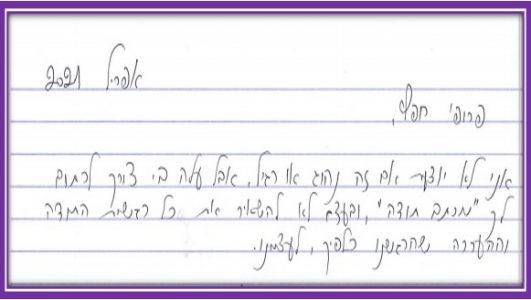 אפריל 2021
פרופ' חפץ,
אני לא יודעת אם זה נהוג או רגיל, אבל עלה בי צורך לכתוב
לך "מכתב תודה", ובעצם לא להשאיר את כל רגשות התודה
וההערכה שהרגשנו כלפיך, לעצמנו.